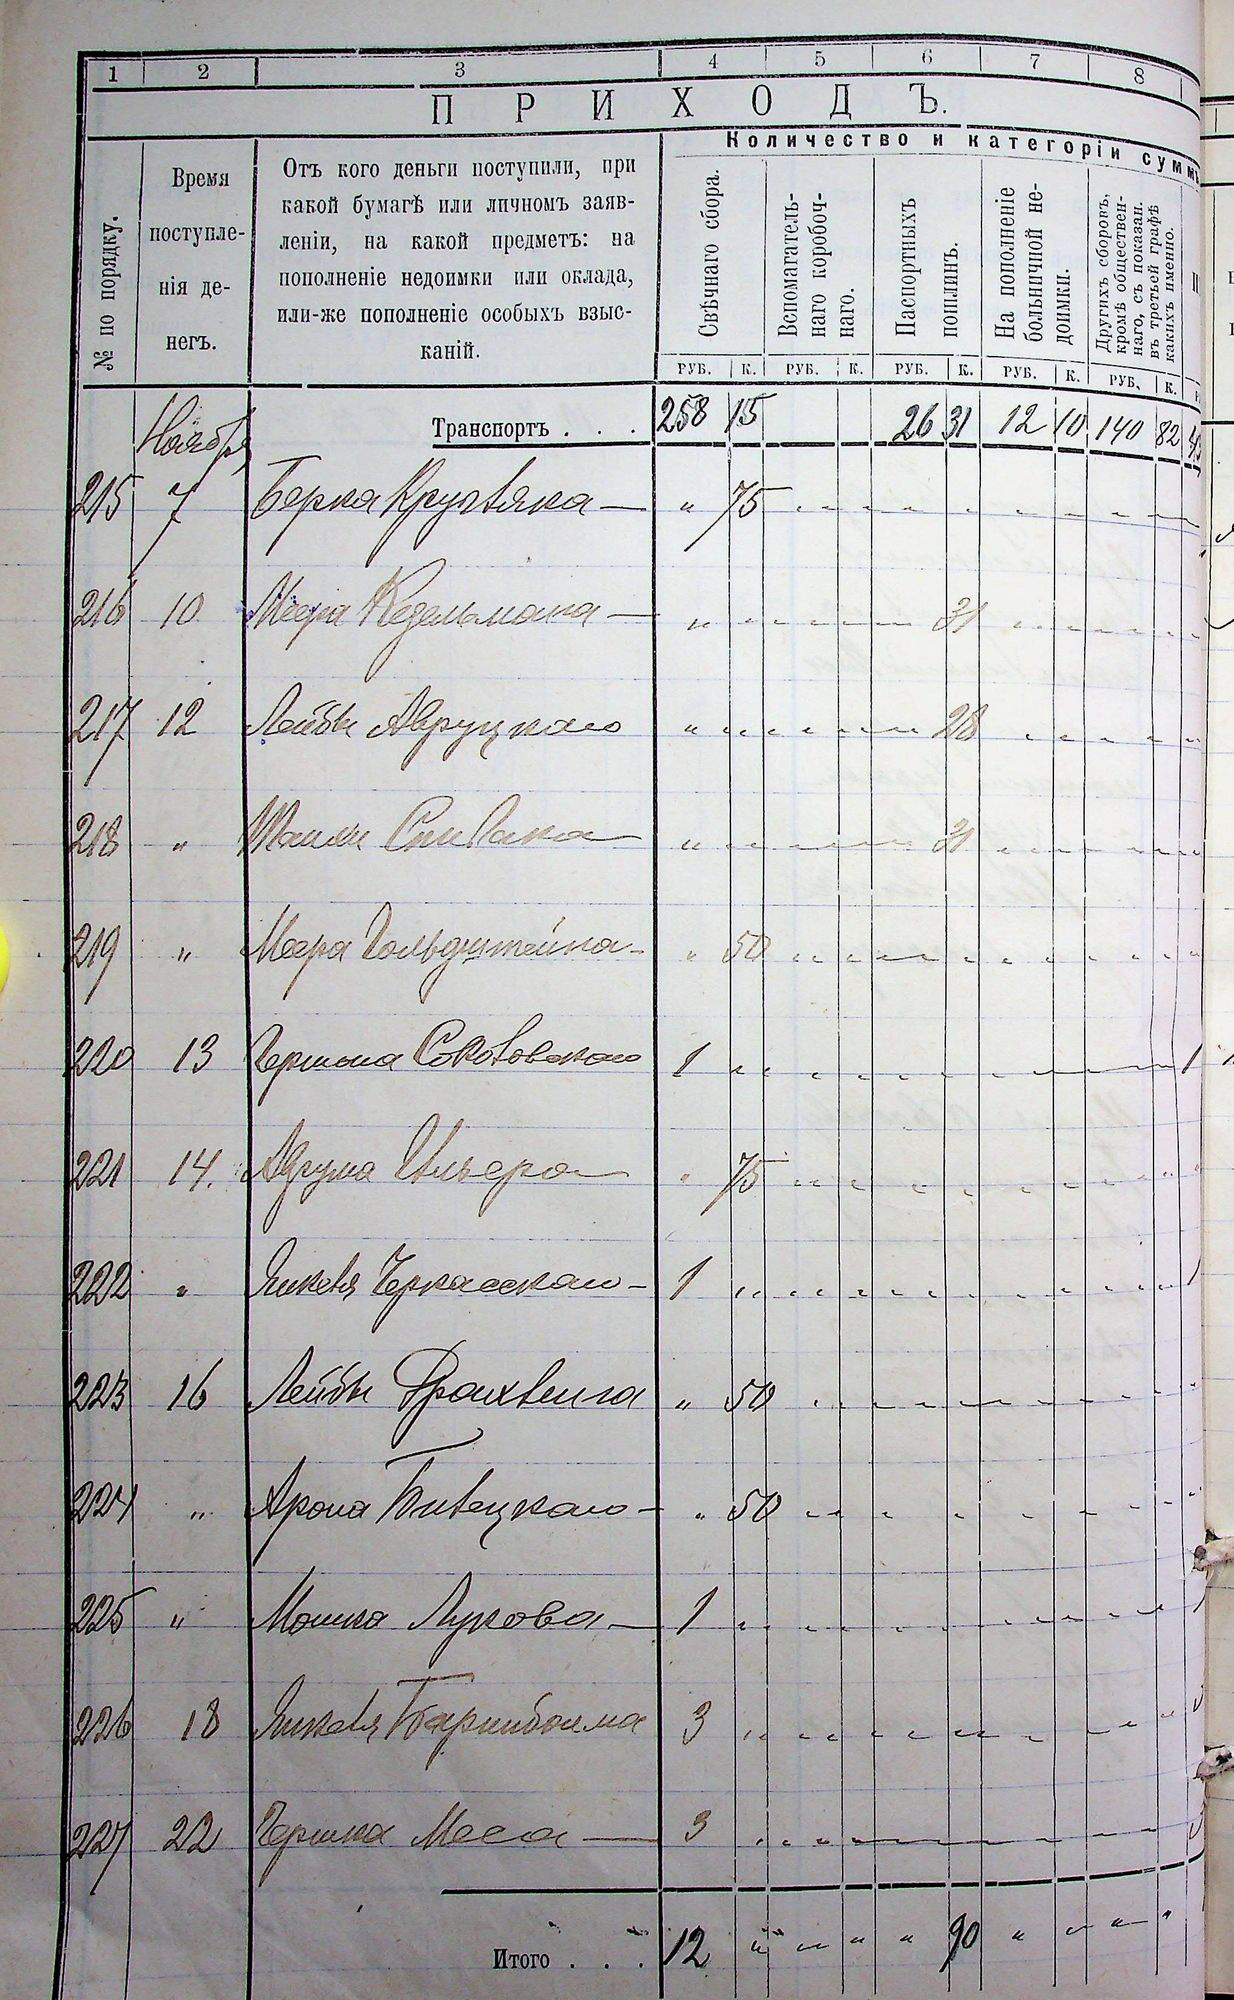 1 2 3 4 5 6 7 8
ПРИХОДЪ.
№ по порядку.
Время
поступле-
нія де-
негъ.
Отъ кого деньги поступили, при
какой бумагѣ или личномъ заяв-
леніи, на какой предметъ: на
пополненіе недоимки или оклада,
или-же пополненіе особыхъ взыс-
каній.
Количество и категоріи суммъ
Свѣчнаго сбора.
Вспомагатель-
наго коробоч-
наго.
Паспортныхъ
поплинъ.
На пополненіе
больничной не-
доимки.
Другихъ сборовъ,
кромѣ обществен-
наго, съ показан.
въ третьей графѣ
какихъ именно.
РУБ. К. РУБ. К. РУБ. К. РУБ. К. РУБ. К.
Ноября Транспортъ . . . 258 15 26 31 12 10 140 82
215 7 Берка Кругляка — " 75
216 10 Меера — " 31
217 12 Лейбы Авруцкаго " 28
218 " Спивака " 31
219 " Меера Гольдштейна - " 50
220 13 Гершона Соколовскаго 1 1
221 14. " 75
222 " Янкеля Черкасскаго - 1 1
223 16 Лейбы " 50
224 " Арона - " 50
225 " Мошка Лукова - 1 1
226 18 Янкеля 3 3
227 22 Гершка — 3 3
Итого . . . 12 " " " " 90 " " " "